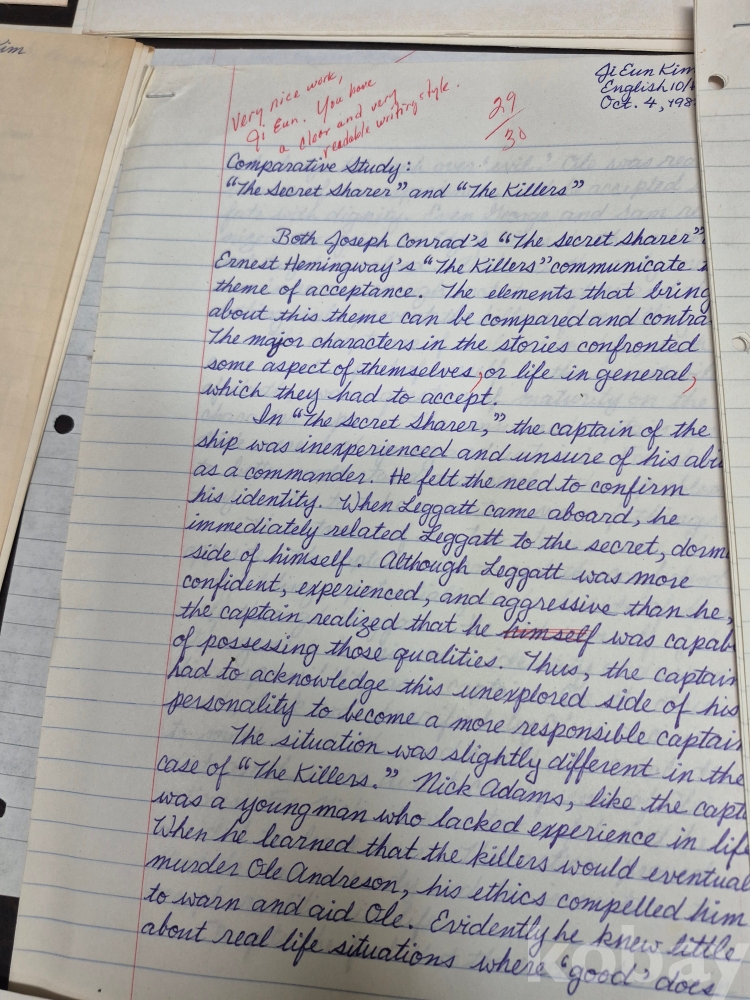 Kim
Very nice work,
Ji Eun. You have
a clear and very
readable writing style.
29/30
Ji Eun Kim
English 10/
Oct. 4, 198
Comparative Study:
"The Secret Sharer" and "The Killers"
Both Joseph Conrad's "The Secret Sharer"
Ernest Hemingway's "The Killers" communicate
theme of acceptance. The elements that bring
about this theme can be compared and contra
The major characters in the stories confronted
some aspect of themselves, or life in general,
which they had to accept.
In "The Secret Sharer," the captain of the
ship was inexperienced and unsure of his abi
as a commander. He felt the need to confirm
his identity. When Leggatt came aboard, he
immediately related Leggatt to the secret, dorm
side of himself. Although Leggatt was more
confident, experienced, and aggressive than he,
the captain realized that he himself was capab
of possessing those qualities. Thus, the captain
had to acknowledge this unexplored side of his
personality to become a more responsible captain
The situation was slightly different in the
case of "The Killers." Nick Adams, like the capt
was a young man who lacked experience in life
When he learned that the killers would eventual
murder Ole Andreson, his ethics compelled him
to warn and aid Ole. Evidently he knew little
about real life situations where 'good' does
kobay